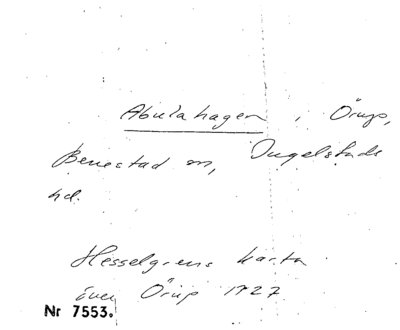 Abulahagen, Örup,
Benestad sn, Ingelstads
hd.
Hesselgrens karta
över Örup 1827
Nr 7553.